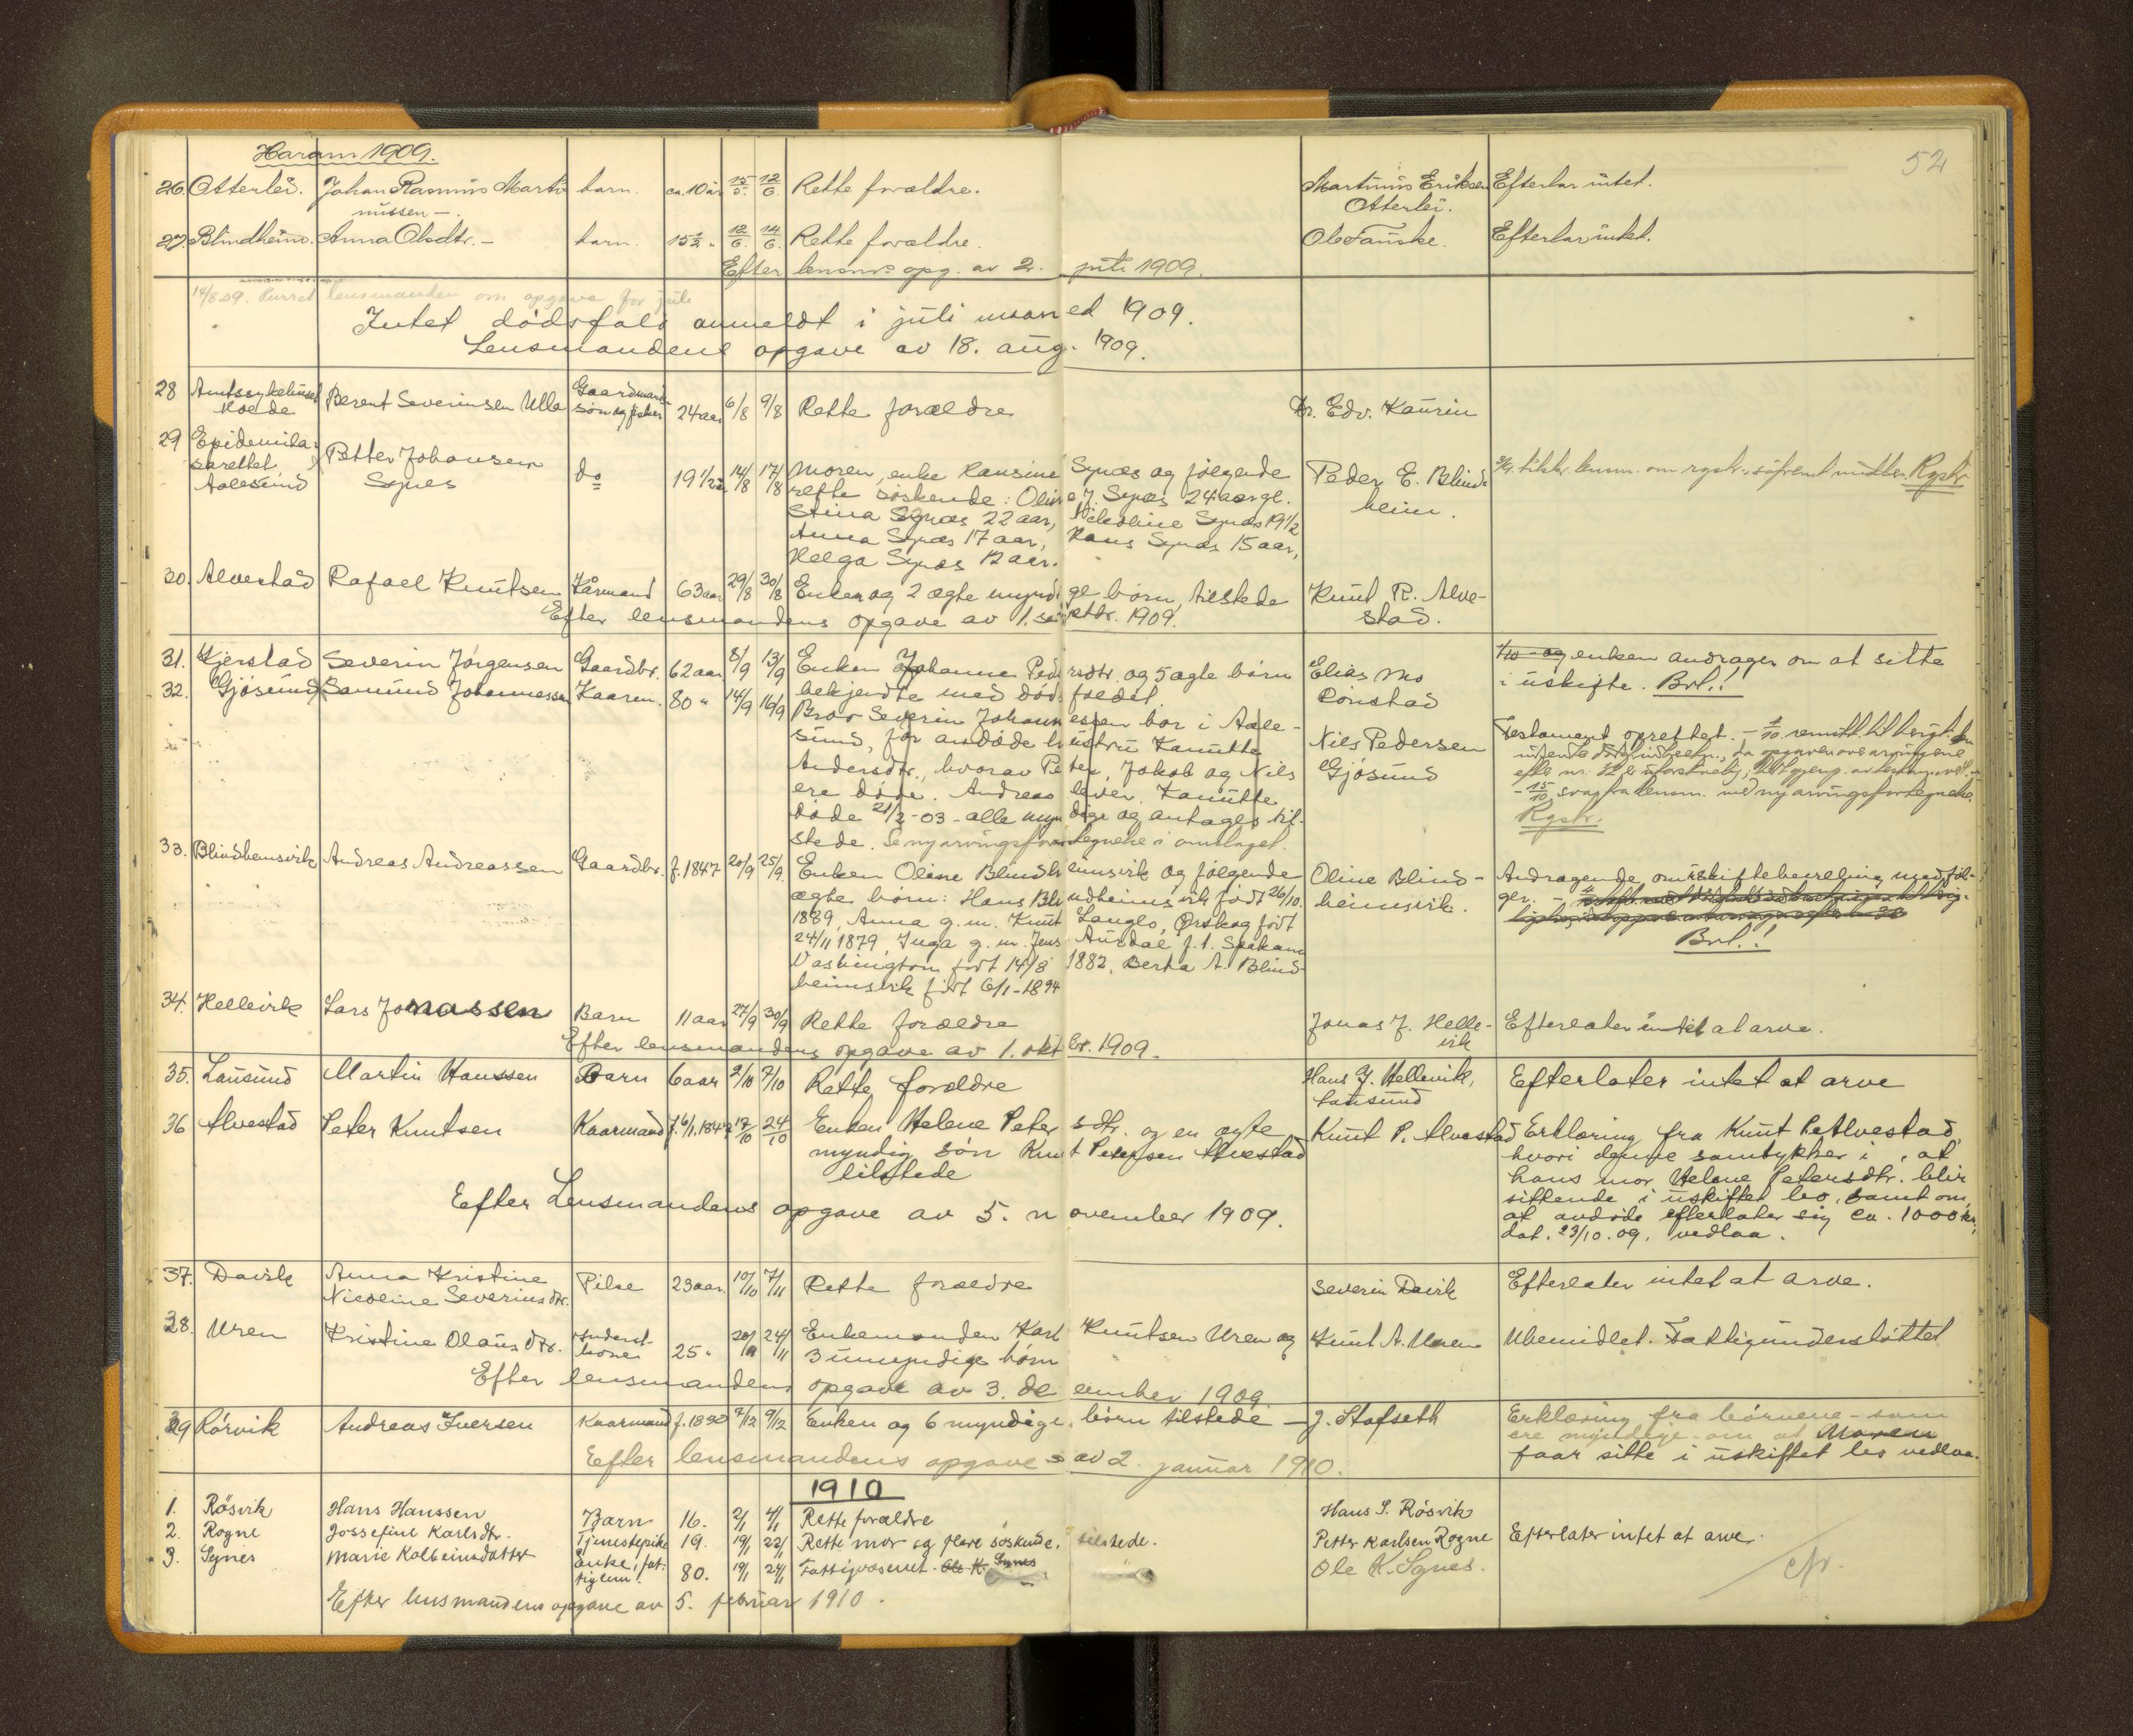 Haram 1909.
52
26. Otterlei. Johan Rasmus Marti- barn. ca. 10 år 15/5. 12/6. Rette forældre. Martinus Eriksen Efterlar intet.
nussen -. Otterlei.
27. Blindheim. Anna Olsdtr. - barn. 15 1/2 " 12/6. 14/6. Rette forældre. Ole Fauske. Efterlar intet.
Efter lensm. opg. av 2. juli 1909.
14/8 09. Purret lensmanden om opgave for juli
Intet dödsfald anmeldt i juli maaned 1909.
Lensmandens opgave av 18. aug. 1909.
28 Amtssykehuset Berent Severinsen Ulla Gaardmand
Molde sön og fisker 24 aar 6/8 9/8 Rette forældre Dr. Edv. Kaurin
29 Epidemila-
sarettet Petter Johansen
Aalesund Synes do 19 1/2 14/8 17/8 Moren, enke Hansine Synæs og følgende Peder E. Blind- tilskr. lensm. om rgstr., såfremt midler. Rgstr
rette söskende: Oline J. Synæs 24 aar gl. heim.
Stina Synæs 22 aar, Nikoline Synæs 19 1/2
Anna Synæs 17 aar, Hans Synæs 15 aar,
Helga Synæs 12 aar.
30. Alvestad Rafael Knutsen Kårmand 63 aar 29/8 30/8 Enken og 2 ægte myndige børn, tilstede Knut R. Alve-
Efter lensmandens opgave av 1. septbr. 1909. stad.
31. Kjerstad Severin Jørgensen Gaardbr. 62 aar 8/9 13/9 Enken Johanne Pedersdtr. og 5 ægte børn Elias Mo enken andrager om at sitte
bekjendte med dødsfaldet. Lönstad i uskifte. Bvl.!
32. Gjösund Samund Johannessen Kaarm. 80 " 14/9 16/9 Bror Severin Johannessen bor i Aale-
sund, før avdøde hustru Kanutte Nils Pedersen Testament oprettet.
Andersdtr., hvorav Peter, Jakob og Nils Gjösund
ere døde. Andreas lever. Kanutte
døde 21/2 - 03 - alle myndige og antages til- svar fra lensm. med ny arvingsfortegnelse.
stede. Se ny arvingsfortegnelse i omslaget. Rgstr.
33. Blindheimsvik Andreas Andreassen Gaardbr. f. 1847 20/9 25/9. Enken Oline Blindheimsvik og følgende Oline Blind- Andragende om uskiftebevilling medföl-
ægte børn: Hans Blindheimsvik født 26/10. heimsvik. ger. -
1889, Anna g. m. Knut Langlo, Ørskog født
24/11 1879, Inga g. m. Jens Aurdal f. t. Spokane Bvl.!
Washington født 14/8 1882, Berta A. Blind-
heimsvik født 6/1 - 1894
34. Hellevik Lars Jonassen Barn 11 aar 27/9 30/9 Rette forældre Jonas J. Helle- Efterlater intet at arve.
Efter lensmandens opgave av 1. oktbr. 1909. vik
35. Lausund Martin Hanssen Barn 6 aar 2/10 7/10 Rette forældre Hans J. Hellevik, Efterlater intet at arve
Lausund
36 Alvestad Peter Knutsen Kaarmand f. 6/1. 1847 17/10 24/10 Enken Helene Petersdtr. og en ægte Knut P. Alvestad Erklæring fra Knut P. Alvestad,
myndig sön Knut Petersen Alvestad hvori denne samtykker i, at
tilstede hans mor Helene Petersdtr. blir
Efter Lensmandens opgave av 5. november 1909. sittende i uskiftet bo, samt om,
at avdöde efterlater sig ca. 1000 kr,
dat. 23/10. 09. vedlaa.
37. Davik Anna Kristine
Nicoline Severinsdtr. Pike 23 aar. 10/10 7/11 Rette forældre Severin Davik Efterlater intet at arve.
38. Uren Kristine Olausdtr. Inderst-
kone 25 " 20/11 24/11 Enkemanden Karl Knutsen Uren og Knut A. Uren Ubemidlet. Fattigunderstöttet
3 umyndige børn
Efter lensmandens opgave av 3. december 1909.
39 Rörvik Andreas Iversen Kaarmand f. 1830 7/12 9/12 Enken og 6 myndige børn tilstede - J. Stafseth Erklæring fra børnene - som
ere myndige - om at Moren
Efter lensmandens opgave av 2. januar 1910. faar sitte i uskiftet bo vedlaa.
1910
1. Rösvik Hans Hanssen Barn 16. 2/1 4/1 Rette forældre Hans S. Rösvik
2. Rogne Jossefine Karlsdtr. Tjenestepike 19. 19/1 22/1 Rette mor og flere söskende, tilstede. Petter Karlsen Rogne Efterlater intet at arve.
3. Synes Marie Kolbeinsdatter Enke, fat-
tiglem. 80. 19/1 24/1 Fattigvæsenet. Ole K. Synes Ole K. Synes.
Efter lensmandens opgave av 5. februar 1910.